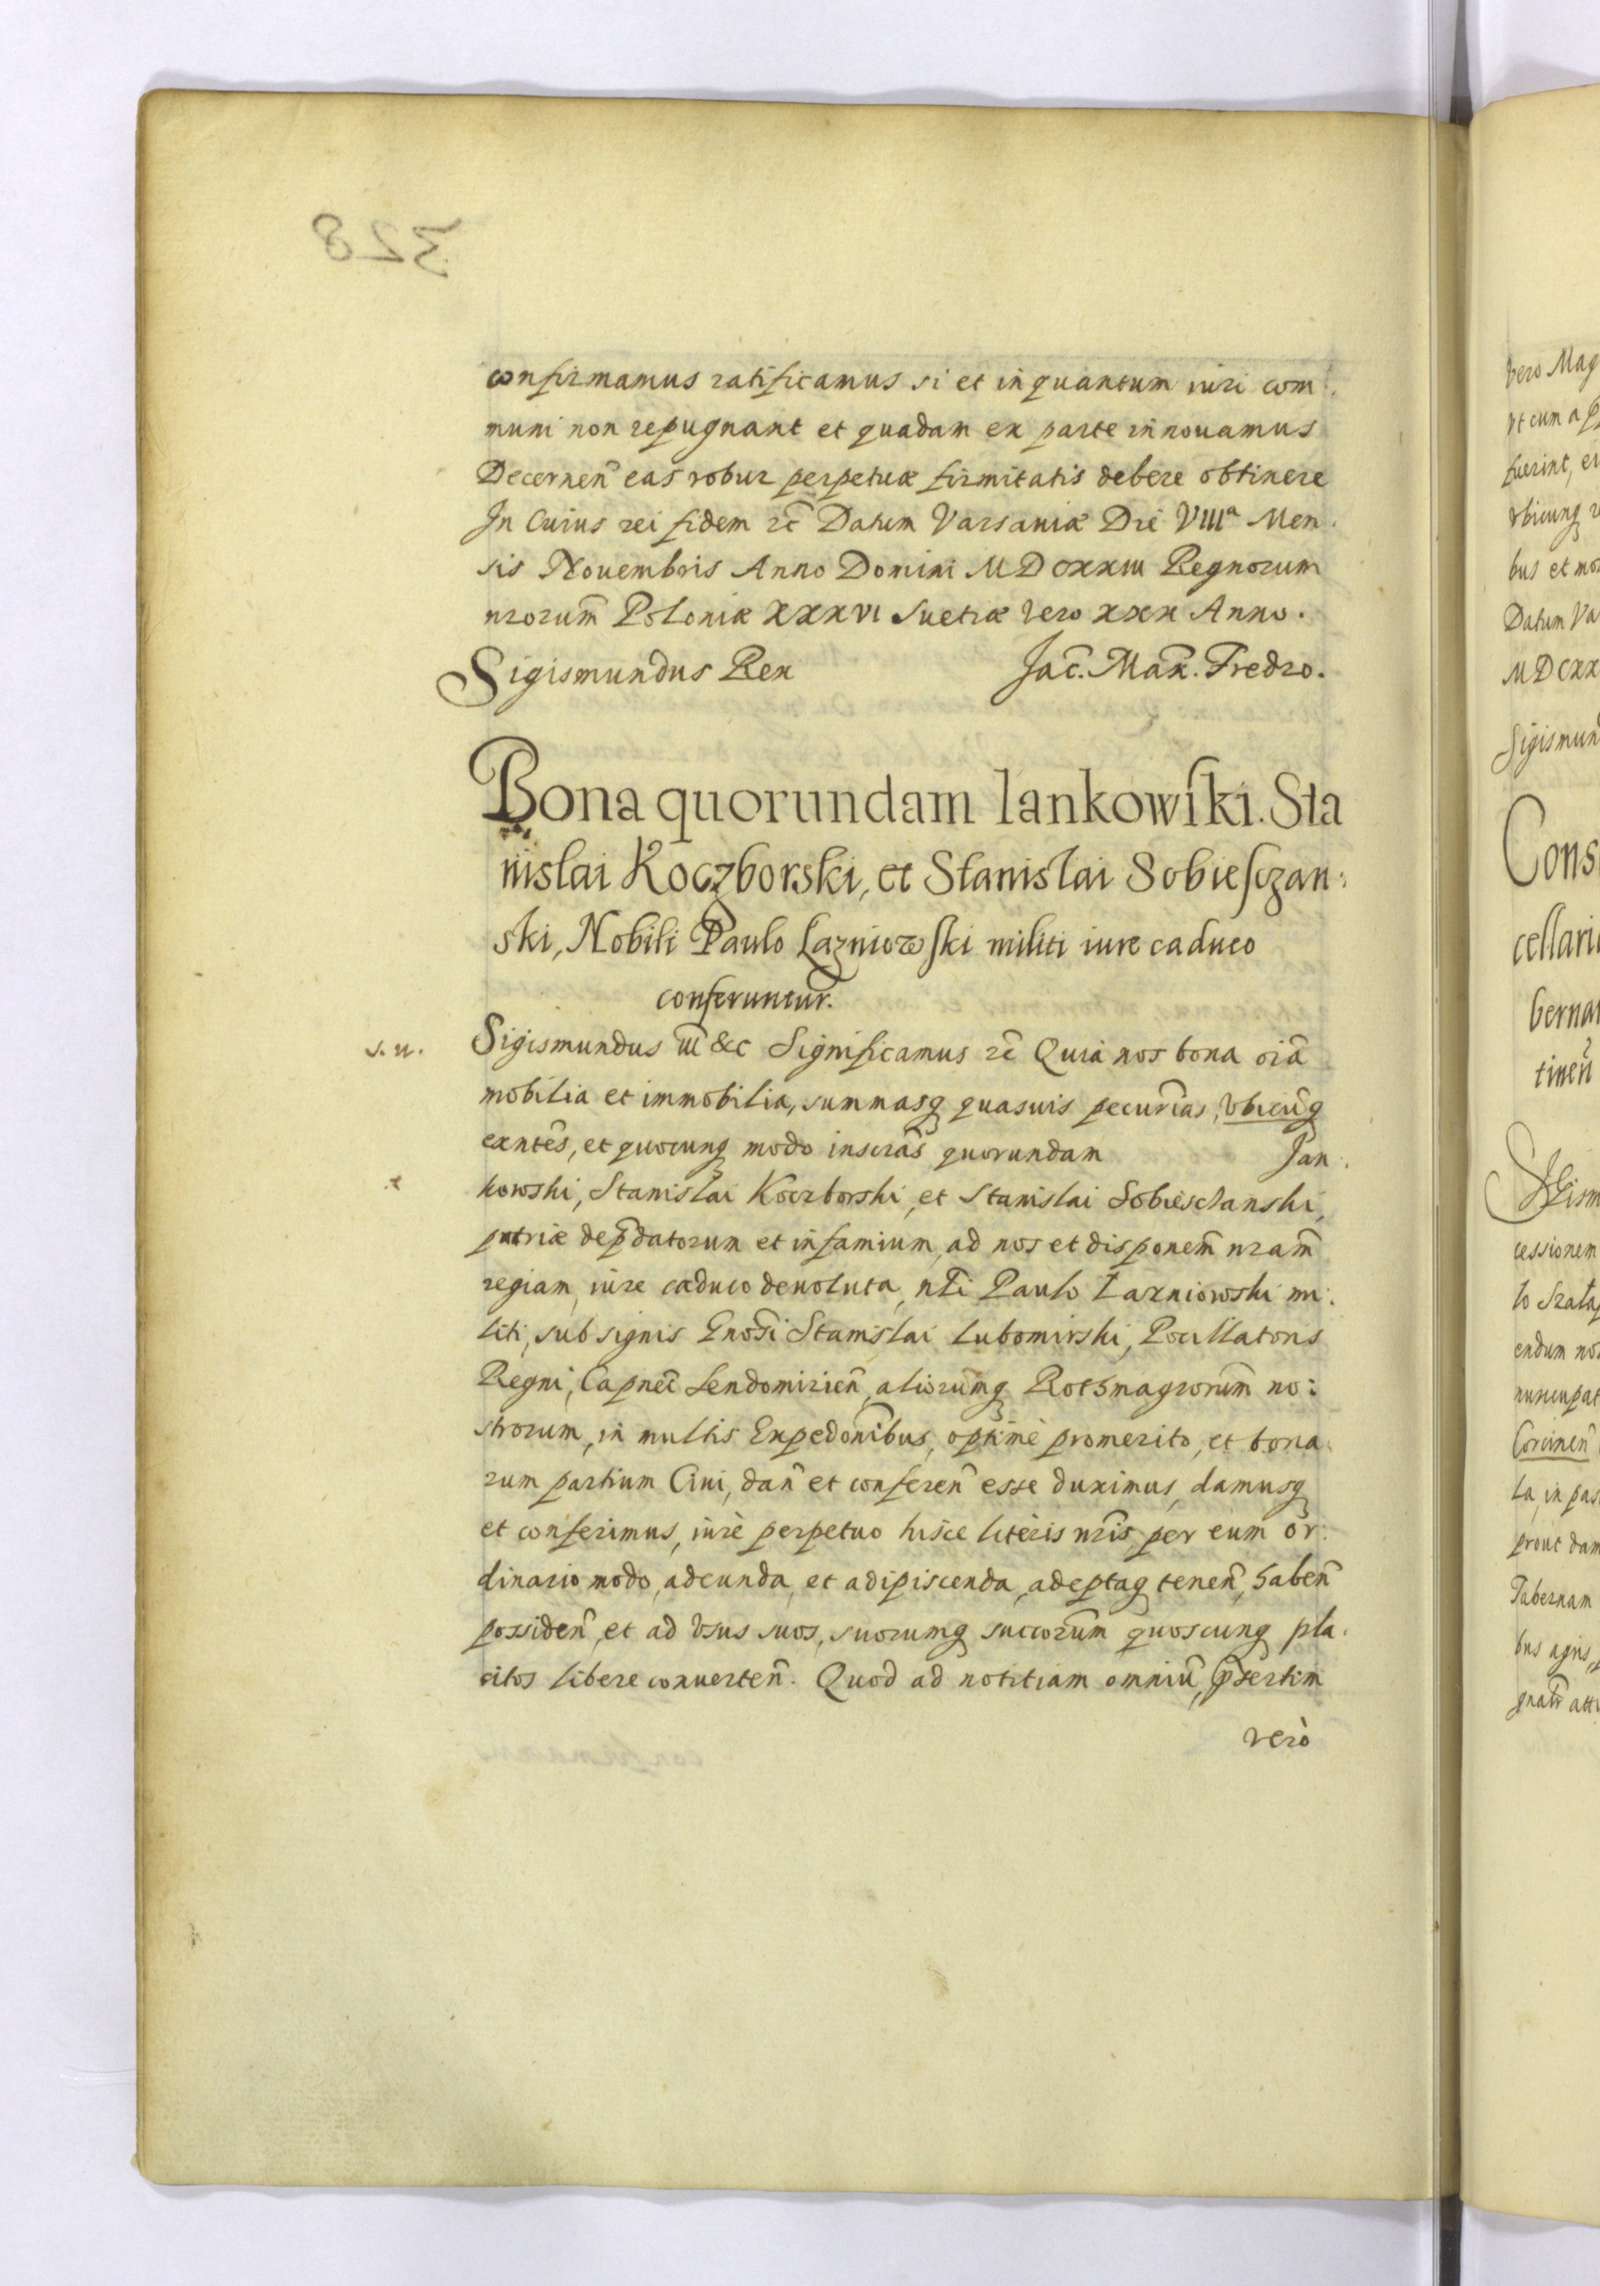 328
confirmamus ratificamus si et inquantum iuri com
muni non repugnant et quadam ex parte innouamus
Decernen̄ eas robur perpetuæ firmitatis debere obtinere
In Cuius rei fidem ꝛc̄ Datum Varsauiæ Die VIIIª Men.
sis Nouembris Anno Domini MDCXXIII Regnorum
nrorum̄ Poloniæ XXXVI Suetiæ Vero XXX Anno.
Sigismundus Rex Jac̄. Max̄. Fredro.
Bona quorundam Iankowſki. Sta
nislai Koczborski, et Stanislai Sobieſczan:
ski, Nobili Paulo Lazniowſki militi iure caduco
conferuntur.
s. n.
Sigismundus III &c Significamus ꝛc̄ Quia nos bona oiā
mobilia et immobilia, summasq quasuis pecun̄ias, vbicūq
exntēs, et quocunq modo inscrās quorundam Jan.
kowski, Stanislai Koczborski, et Stanislai Sobiesczanski,
patriæ dep̄datorum et infamium, ad nos et disponem̄ nram̄
regiam, iure caduco deuoluta, nl̄i Paulo Łazniowski mi.
liti, sub signis Gnosī Stanislai Lubomirski, Pocillatoris
Regni, Capnei̅ Sendomirien̄, aliorum̄q Rothmagrorum̄ no:
strorum, in multis Expedonībus, optimè promerito, et bona.
rum partium Ciui, dan̄ et conferen̄ esse duximus, damusq
et conferimus, iurè perpetuo hisce literis nrīs, per eum or.
dinario modo, adeunda, et adipiscenda, adeptaq tenen̄, haben̄
possiden̄, et ad vsus suos, suorumq succorum̄ quoscunq pla.
citos libere conuerten̄. Quod ad notitiam omniū, p̄sertim
verò
vero Mag
vt cum a
fuerint, e
vbicunq
bus et mo
Datum Va
MDCXX
Sigismun
Cons
cellari
berna
tinen̄
Sigism
cessionem
endum no
nuncupat
Corcinen̄
la, in pas
prout dam
Tabernam
bus agris